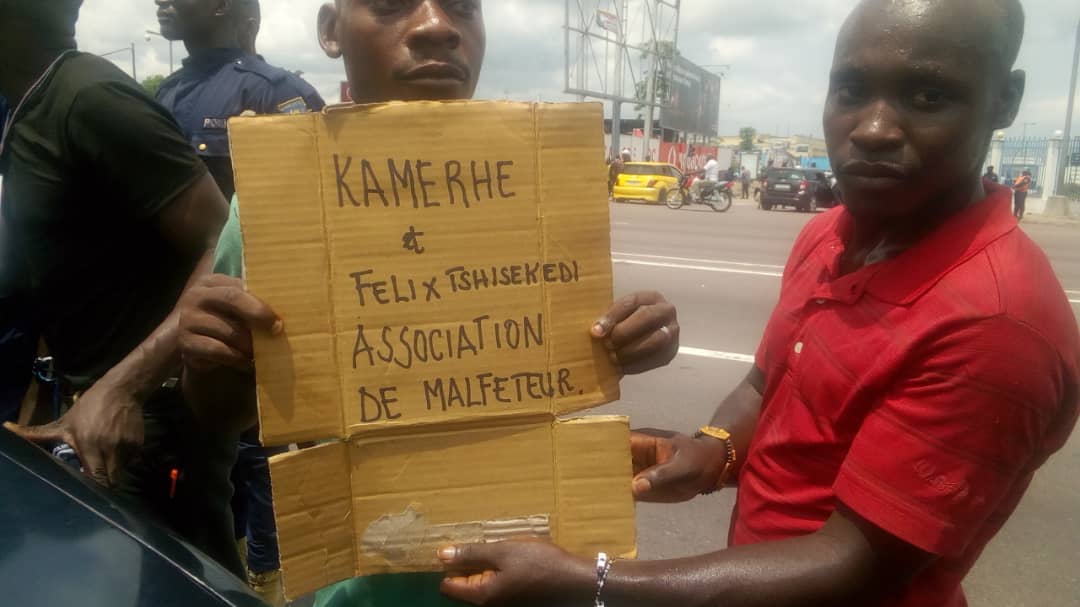 KAMERHE
&
FELIX TSHISEKEDI
ASSOCIATION
DE MALFETEUR.